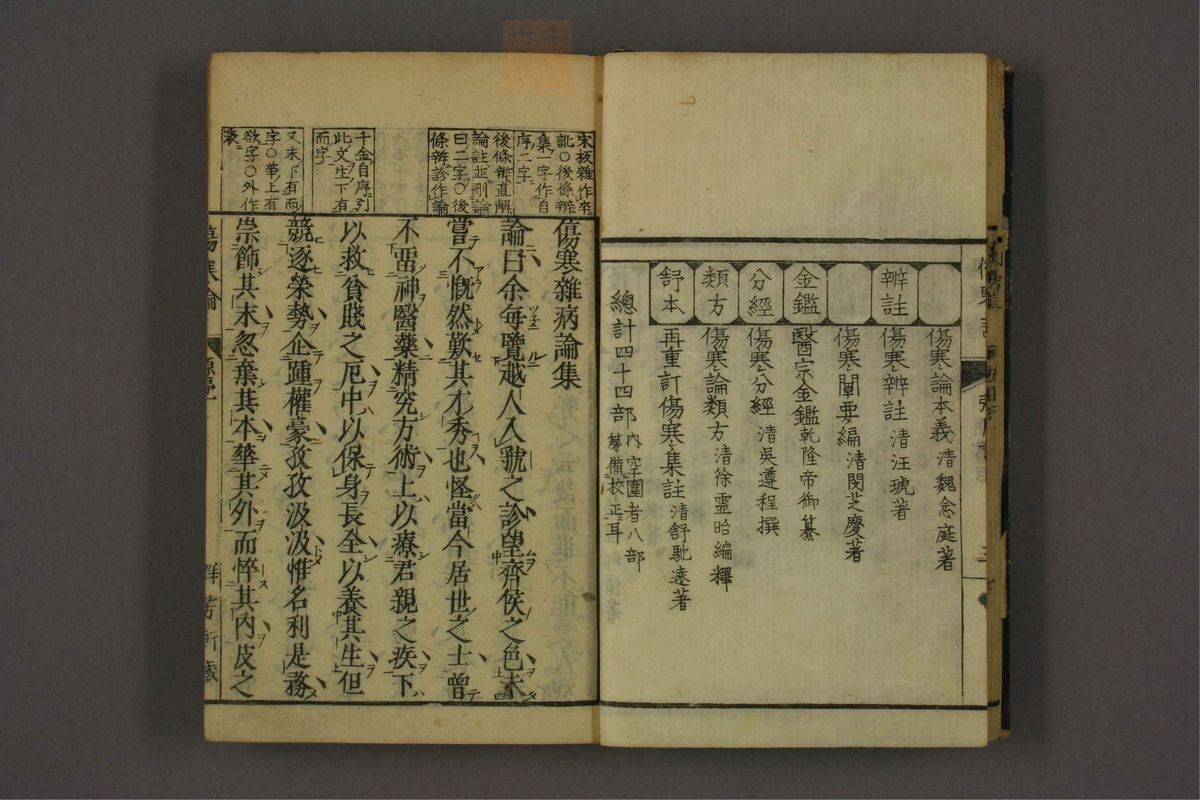 傷寒論本義 清魏念庭著
辨註 傷寒辨註 清汪琥著
傷寒闡要編 清閔芝慶著
金鑑 醫宗金鑑 乾隆帝御纂
分經 傷寒分經 清吳遵程撰
類方 傷寒論類方 清徐霊昭編釋
舒本 再重訂傷寒集註 清舒馳遠著
總計四十四部 內空圍者八部
備校正耳
宋板雜作卒
訛○後條辨
集一字作自
序二字
後條辨直解
論註並刪論
曰二字○後
條辨診作論
千金自序引
此文生下有
而字
又末下有而
字○華上有
欲字○外作
表
傷寒雜病論集
論曰余每覽越人入虢之診望齊侯之色未
嘗不慨然歎其才秀也怪當今居世之士曾
不畱神醫藥精究方術上以療君親之疾下
以救貧賤之厄中以保身長全以養其生但
競逐榮勢企踵權豪孜孜汲汲惟名利是務
崇飾其末忽棄其本華其外而悴其內皮之